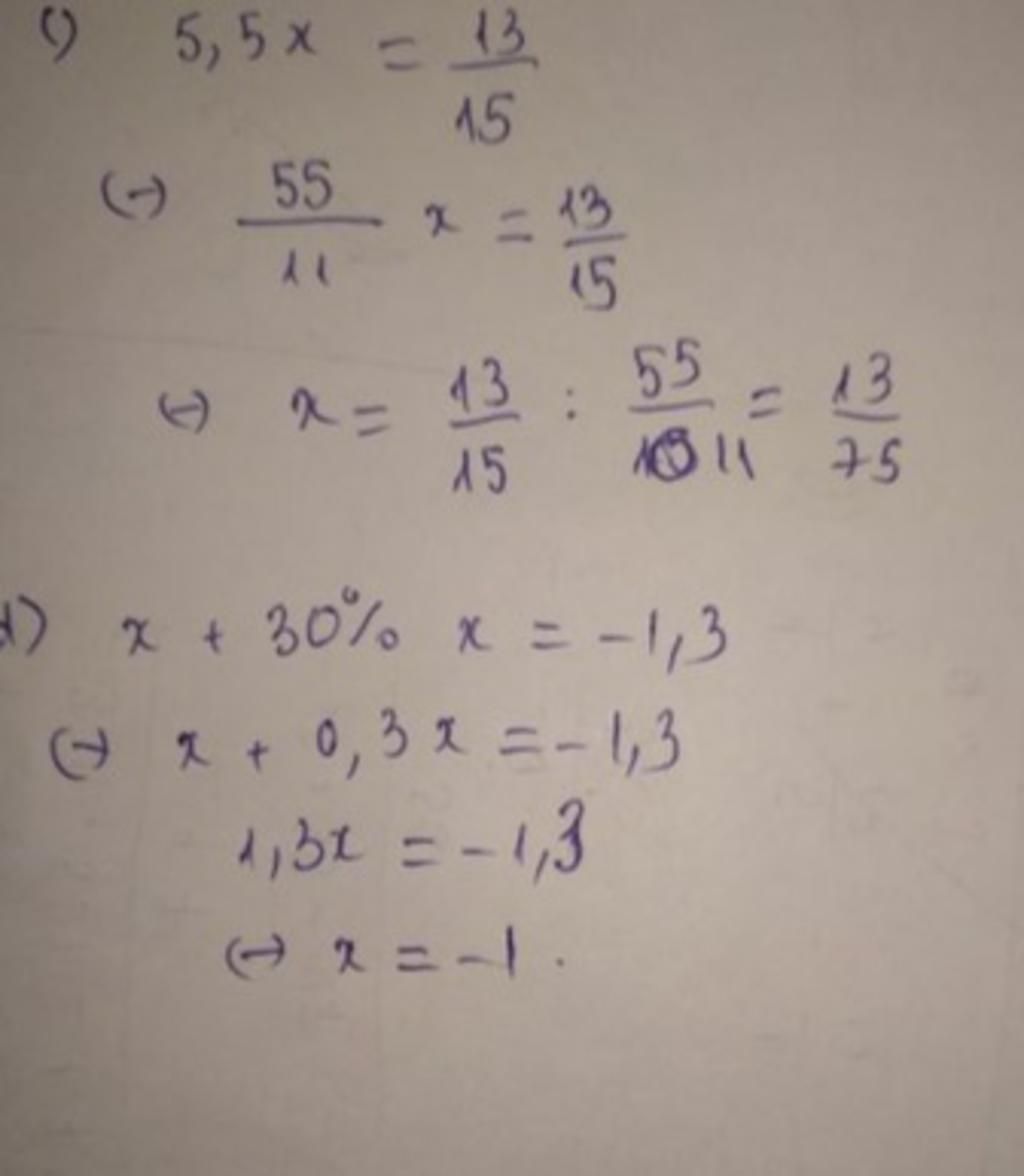 c) 5,5x = 13/15
(-) 55/11 x = 13/15
(-) x = 13/15 : 55/11 = 13/75
d) x + 30% x = -1,3
(-) x + 0,3x = -1,3
1,3x = -1,3
(-) x = -1.